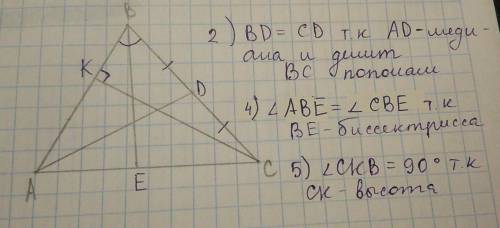 B
2) BD = CD т.к AD-меди-
ана и делит
BC пополам
K
D
4) ∠ABE = ∠CBE т.к
BE-биссектрисса
5) ∠CKB = 90° т.к
CK-высота
A
E
C